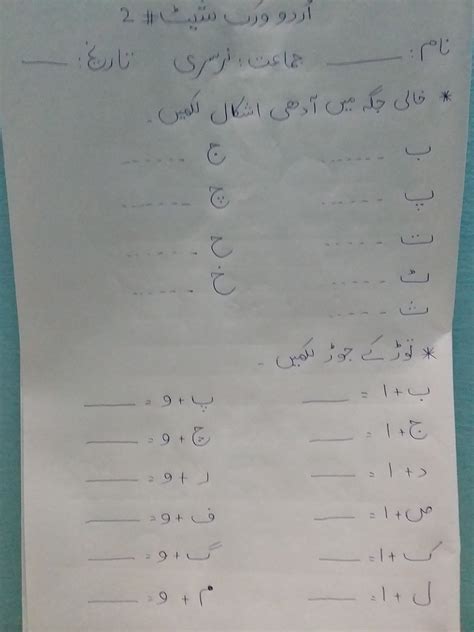 اُردو ورک شیٹ # 2
نام: ____ جماعت: نرسری تاریخ: ____
* خالی جگہ میں آدھی اشکال لکھیں۔
ب ....... ج .......
پ ....... چ .......
ت ....... ح .......
ٹ ....... خ .......
ث .......
* توڑ کے جوڑ لکھیں۔
ب + ا = ____ پ + و = ____
ج + ا = ____ چ + و = ____
د + ا = ____ ر + و = ____
ص + ا = ____ ف + و = ____
ک + ا = ____ گ + و = ____
ل + ا = ____ م + و = ____